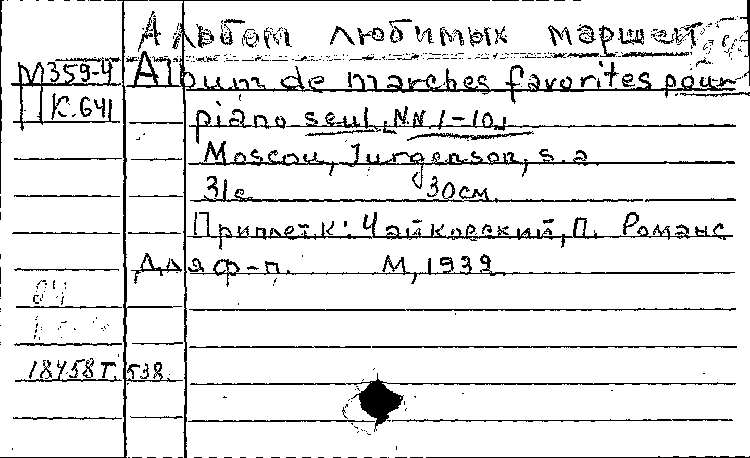 Альбом любимых маршей
М359-4 Album de marches favorites pour
К.641 piano seul, NN 1-10.
Moscou, Jurgenson, s.a.
31с 30см.
Приплет.к: Чайковский, П. Романс
для ф-п. М, 1939.
84
18458 т. 538.